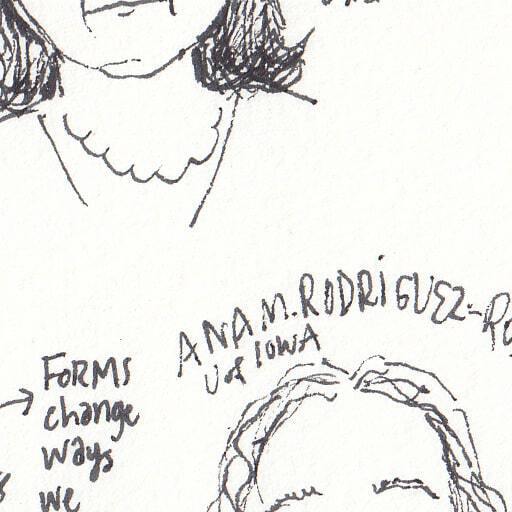 ANA M. RODRIGUEZ-
U of IOWA
FORMS
change
ways
we